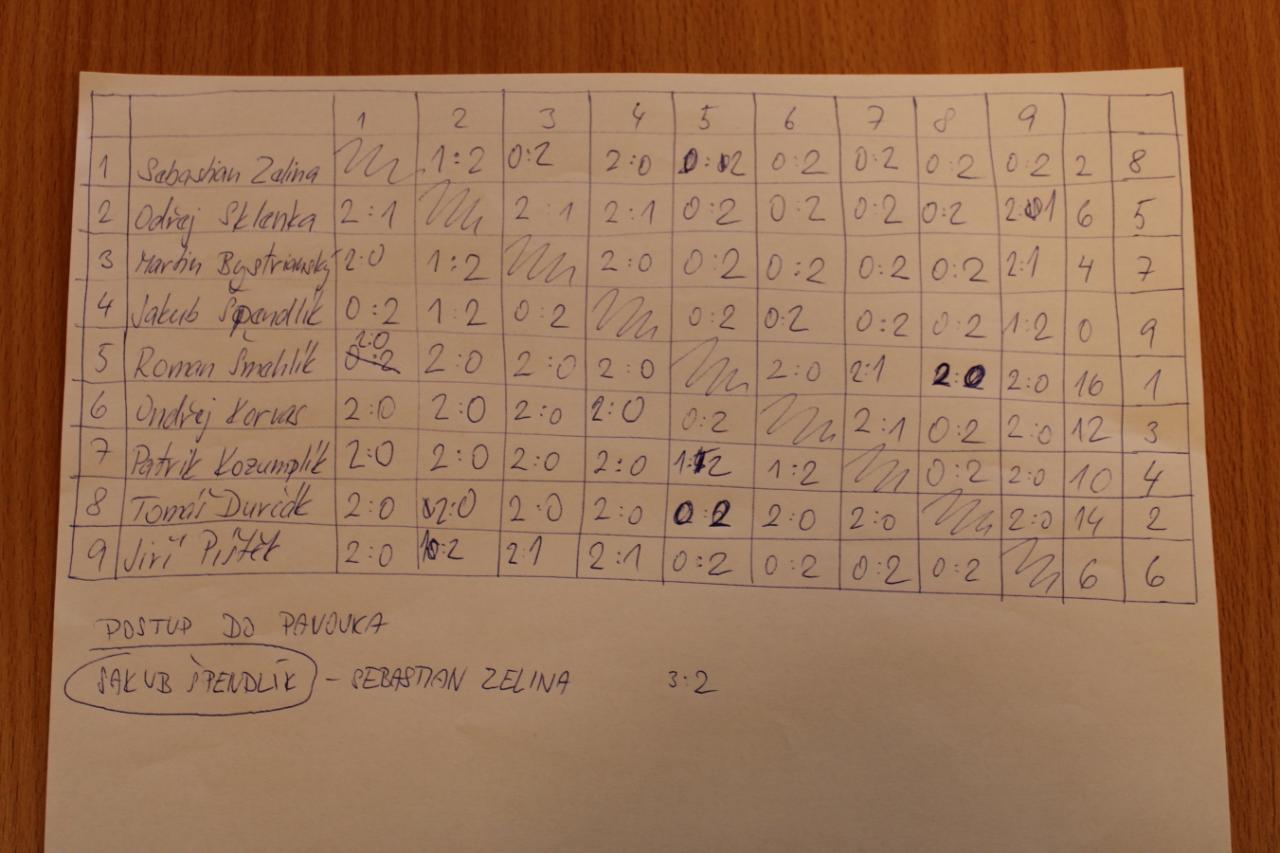 1 2 3 4 5 6 7 8 9
1 Sebastian Zelina 1:2 0:2 2:0 0:2 0:2 0:2 0:2 0:2 2 8
2 Odřej Sklenka 2:1 2:1 2:1 0:2 0:2 0:2 0:2 2:1 6 5
3 Martin Bystrianský 2:0 1:2 2:0 0:2 0:2 0:2 0:2 2:1 4 7
4 Jakub Špendlík 0:2 1:2 0:2 0:2 0:2 0:2 0:2 1:2 0 9
5 Roman Šmahlík 2:0 2:0 2:0 2:0 2:0 2:1 2:0 2:0 16 1
6 Ondřej Korvas 2:0 2:0 2:0 2:0 0:2 2:1 0:2 2:0 12 3
7 Patrik Kozumplík 2:0 2:0 2:0 2:0 1:2 1:2 0:2 2:0 10 4
8 Tomáš Durčák 2:0 2:0 2:0 2:0 0:2 2:0 2:0 2:0 14 2
9 Jiří Pištěk 2:0 1:2 2:1 2:1 0:2 0:2 0:2 0:2 6 6
POSTUP DO PAVOUKA
JAKUB ŠPENDLÍK - SEBASTIAN ZELINA 3:2